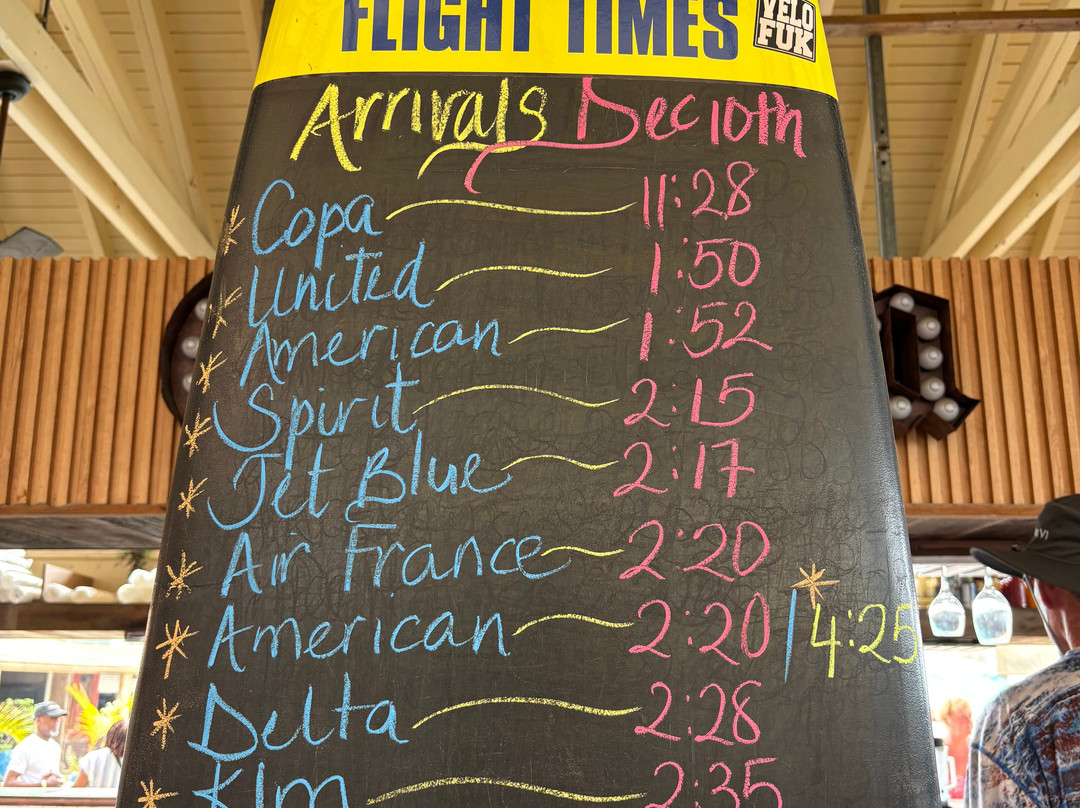 FLIGHT TIMES
VELO
FUK
Arrivals Dec 10th
Copa 11:28
United 1:50
American 1:52
Spirit 2:15
Jet Blue 2:17
Air France 2:20
American 2:20 / 4:25
Delta 2:28
Klm 2:35
XVI